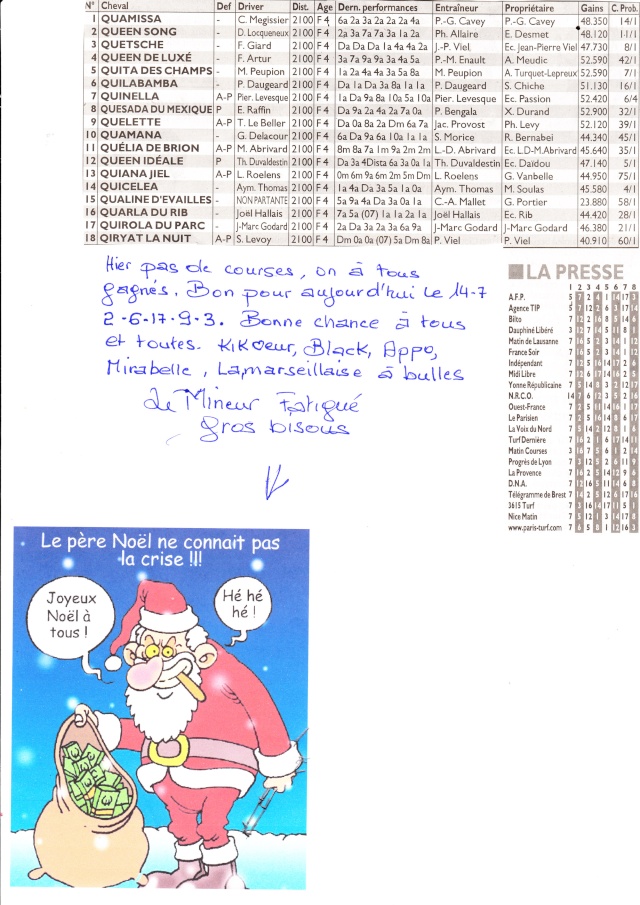 N° Cheval Def Driver Dist. Age Dern. performances Entraîneur Propriétaire Gains C. Prob.
1 QUAMISSA - C. Megissier 2100 F 4 6a 2a 3a 2a 2a 2a 4a P.-G. Cavey P.-G. Cavey 48.350 14/1
2 QUEEN SONG - D. Locqueneux 2100 F 4 2a 3a 7a 7a 3a 1a 2a Ph. Allaire E. Desmet 48.120 11/1
3 QUETSCHE - F. Giard 2100 F 4 Da Da Da 1a 4a 4a 2a J.-P. Viel Ec. Jean-Pierre Viel 47.730 8/1
4 QUEEN DE LUXÉ - F. Artur 2100 F 4 3a 7a 9a 9a 3a 4a 5a P.-M. Enault A. Meudic 52.590 15/1
5 QUITA DES CHAMPS - M. Peupion 2100 F 4 1a 2a 4a 4a 3a 5a 8a M. Peupion A. Turquet-Lepreux 52.590 7/1
6 QUILABAMBA - P. Daugeard 2100 F 4 Da 1a Da 3a 8a 1a 1a P. Daugeard S. Chiche 51.130 16/1
7 QUINELLA A-P Pier. Levesque 2100 F 4 1a Da 9a 8a 10a 5a 10a Pier. Levesque Ec. Passion 52.420 6/4
8 QUESADA DU MEXIQUE P E. Raffin 2100 F 4 Da 9a 2a 4a 2a 7a 0a P. Bengala X. Durand 52.900 32/1
9 QUELETTE A-P T. Le Beller 2100 F 4 Da 0a 8a 2a Dm 6a 7a Jac. Provost Ph. Levy 52.120 39/1
10 QUAMANA - G. Delacour 2100 F 4 6a Da 9a 6a 10a 1a 1a S. Morice R. Bernabei 44.340 45/1
11 QUÉLIA DE BRION A-P M. Abrivard 2100 F 4 8m 8a 7a 1m 9a 2m 2m L.-D. Abrivard Ec. L.D-M.Abrivard 45.640 35/1
12 QUEEN IDÉALE P Th. Duvaldestin 2100 F 4 Da 3a 4Dista 6a 3a 0a 1a Th. Duvaldestin Ec. Daïdou 47.140 5/1
13 QUIANA JIEL A-P L. Roelens 2100 F 4 0m 6m 9a 6m 2m 5m Dm L. Roelens G. Vanbelle 44.950 75/1
14 QUICELEA - Aym. Thomas 2100 F 4 1a 4a Da 3a 5a 1a 0a Aym. Thomas M. Soulas 45.580 4/1
15 QUALINE D'EVAILLES - NON PARTANTE 2100 F 4 5a 9a 4a Da 3a 0a 1a C.-A. Mallet G. Portier 23.880 58/1
16 QUARLA DU RIB - Joël Hallais 2100 F 4 7a 5a (07) 1a 1a 2a 1a Joël Hallais Ec. Rib 44.420 28/1
17 QUIROLA DU PARC - J-Marc Godard 2100 F 4 2a Da 3a 2a 3a 6a 9a J-Marc Godard J-Marc Godard 46.380 21/1
18 QIRYAT LA NUIT A-P S. Levoy 2100 F 4 Dm 0a 0a (07) 5a Dm 8a P. Viel P. Viel 40.910 60/1
Hier pas de courses, on à tous
gagnés. Bon pour aujourd'hui Le 14-7
2-6-17-9-3. Bonne chance à tous
et toutes. KiKoeur, Black, Appo,
Mirabelle, Lamarseillaise à bulles
Le Mineur Fatigué
gros bisous
LA PRESSE
1 2 3 4 5 6 7 8
A.F.P.
Agence TIP
Bilto
Dauphiné Libéré
Matin de Lausanne
France Soir
Indépendant
Midi Libre
Yonne Républicaine
N.R.C.O.
Ouest-France
Le Parisien
La Voix du Nord
Turf Dernière
Matin Courses
Progrès de Lyon
La Provence
D.N.A.
Télégramme de Brest
3615 Turf
Nice Matin
www.paris-turf.com
Le père Noël ne connait pas
la crise !!!
Joyeux
Noël à
tous !
Hé hé
hé !